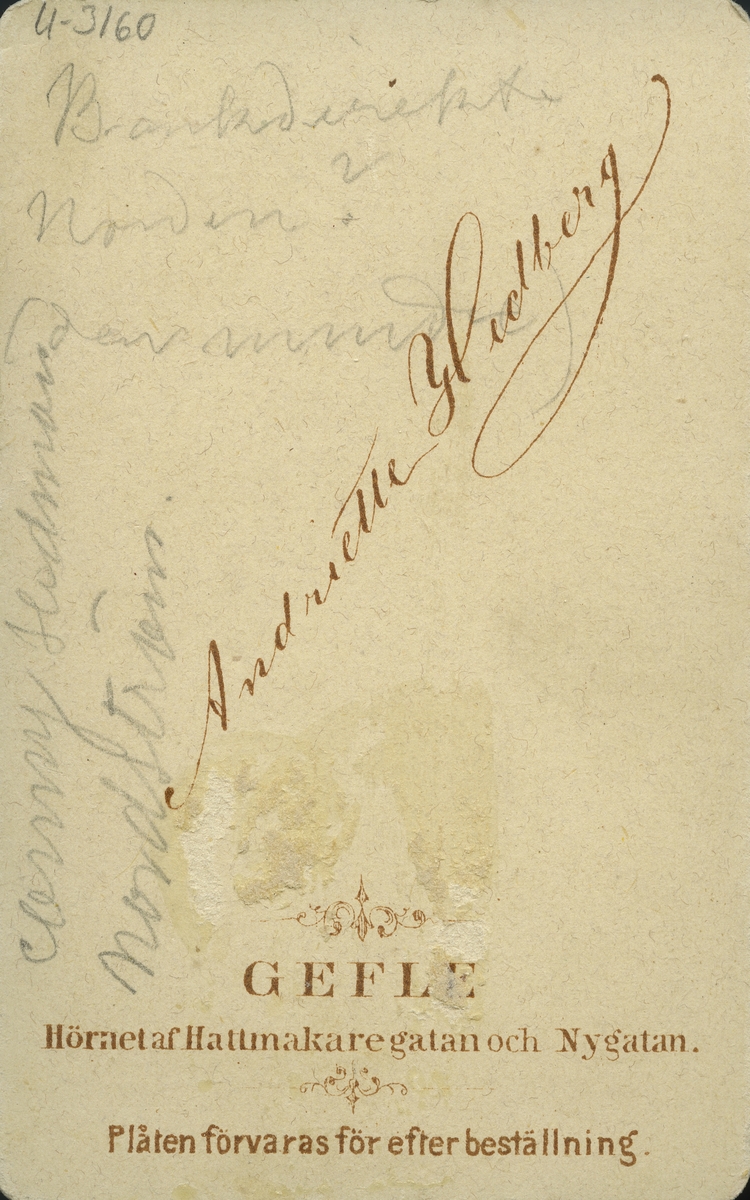 U-3160
Bankdirekt.
Norden ?
den mindre)
Conny Hodman
Nordström.
Andriette Hedberg
GEFLE
Hörnet af Hattmakaregatan och Nygatan.
Plåten förvaras för efterbeställning.